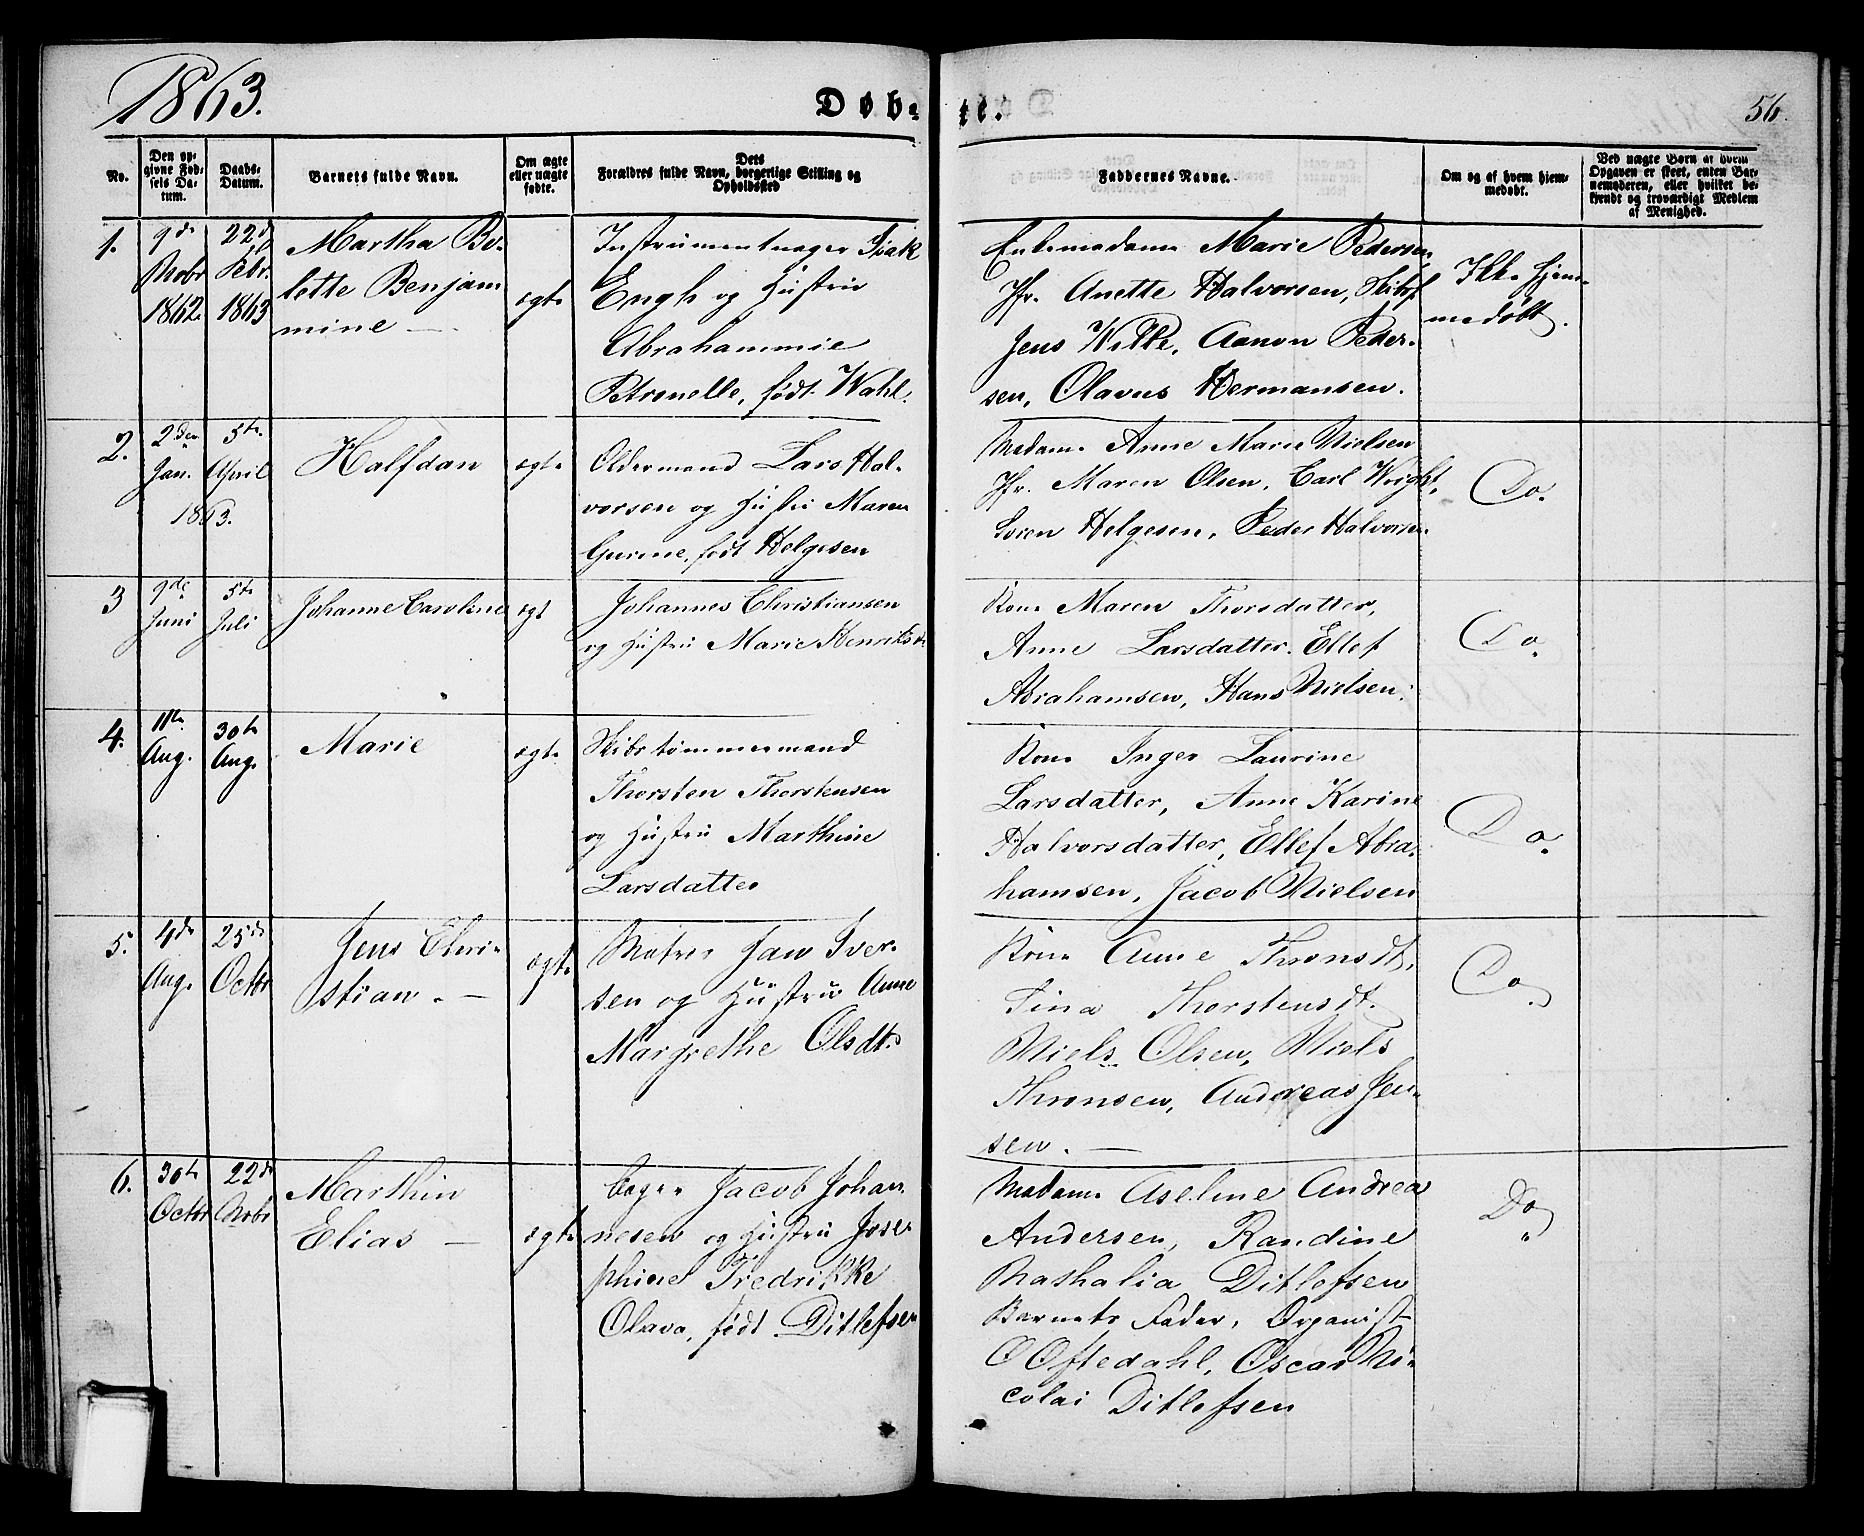 1863.
Døb-
te.
56.
No.
Den op-
givne Fød-
sels Da-
tum.
Daabs-
Datum.
Barnets fulde Navn.
Om ægte
eller uægte
fødte.
Dets
Forældres fulde Navn, borgerlige Stilling og
Opholdssted
Faddernes Navne.
Om og af hvem hjem-
medøbt.
Ved uægte Børn af hvem
Opgaven er skeet, enten Bar-
nemoderen, eller hvilket be-
kjendt og troværdigt Medlem
af Menighed.
1.
9de
Novbr
1862.
22de
Febr.
1863
Martha Bo-
lette Benjam
mine —
ægte
Instrumentmager Isak
Engh og Hustru
Abrahammie
Petronelle, født Wahl.
Enkemadame Marie Pedersen
Jfr. Anette Halvorsen, Skibsf
Jens Wille, Aanon Peder-
sen, Olavus Hermansen.
Ikke hjem-
medøbt.
2.
2den
Jan.
5te
April
1863.
Halfdan
ægte
Oldermand Lars Hal-
vorsen og Hustru Maren
Gurine, født Helgesen
Madame Anne Marie Nielsen
Jfr. Maren Olsen, Carl Wright,
Søren Helgesen, Peder Halvorsen
Do.
3
9de
Juni
5te
Juli
Johanne Caroline
ægt
Johannes Christiansen
og Hustru Marie Henriksdr
Kone Maren Thorsdatter,
Anne Larsdatter. Ellef
Abrahamsen, Hans Nielsen.
Do.
4.
11te
Aug.
30te
Aug.
Marie
ægte
Skibstømmermand
Thorsten Thorstensen
og Hustru Marthine
Larsdatter
Kone Inger Laurine
Larsdatter, Anne Karine
Halvorsdatter, Ellef Abra-
hamsen, Jacob Nielsen
Do.
5.
4de
Aug.
25de
Octbr
Jens Chri-
stian. —
ægte
Matros Jan Iver-
sen og Hustru Anne
Margrethe Olsdt.
Kone Anne Thronsdt.
Tina Thorstensdt.
Niels Olsen, Niels
Thronsen, Andreas Jen-
sen. —
Do.
6.
30te
Octbr
22de
Novbr
Marthin
Elias —
ægte
Bager Jacob Johan
nesen og Hustru Jose-
phine Fredrikke
Olava, født Ditlefsen
Madame Aseline Andrea
Andersen, Randine
Nathalia Ditlefsen
Barnets Fader, Organist
O Oftedahl, Oscar Ni-
colai Ditlefsen
Do.